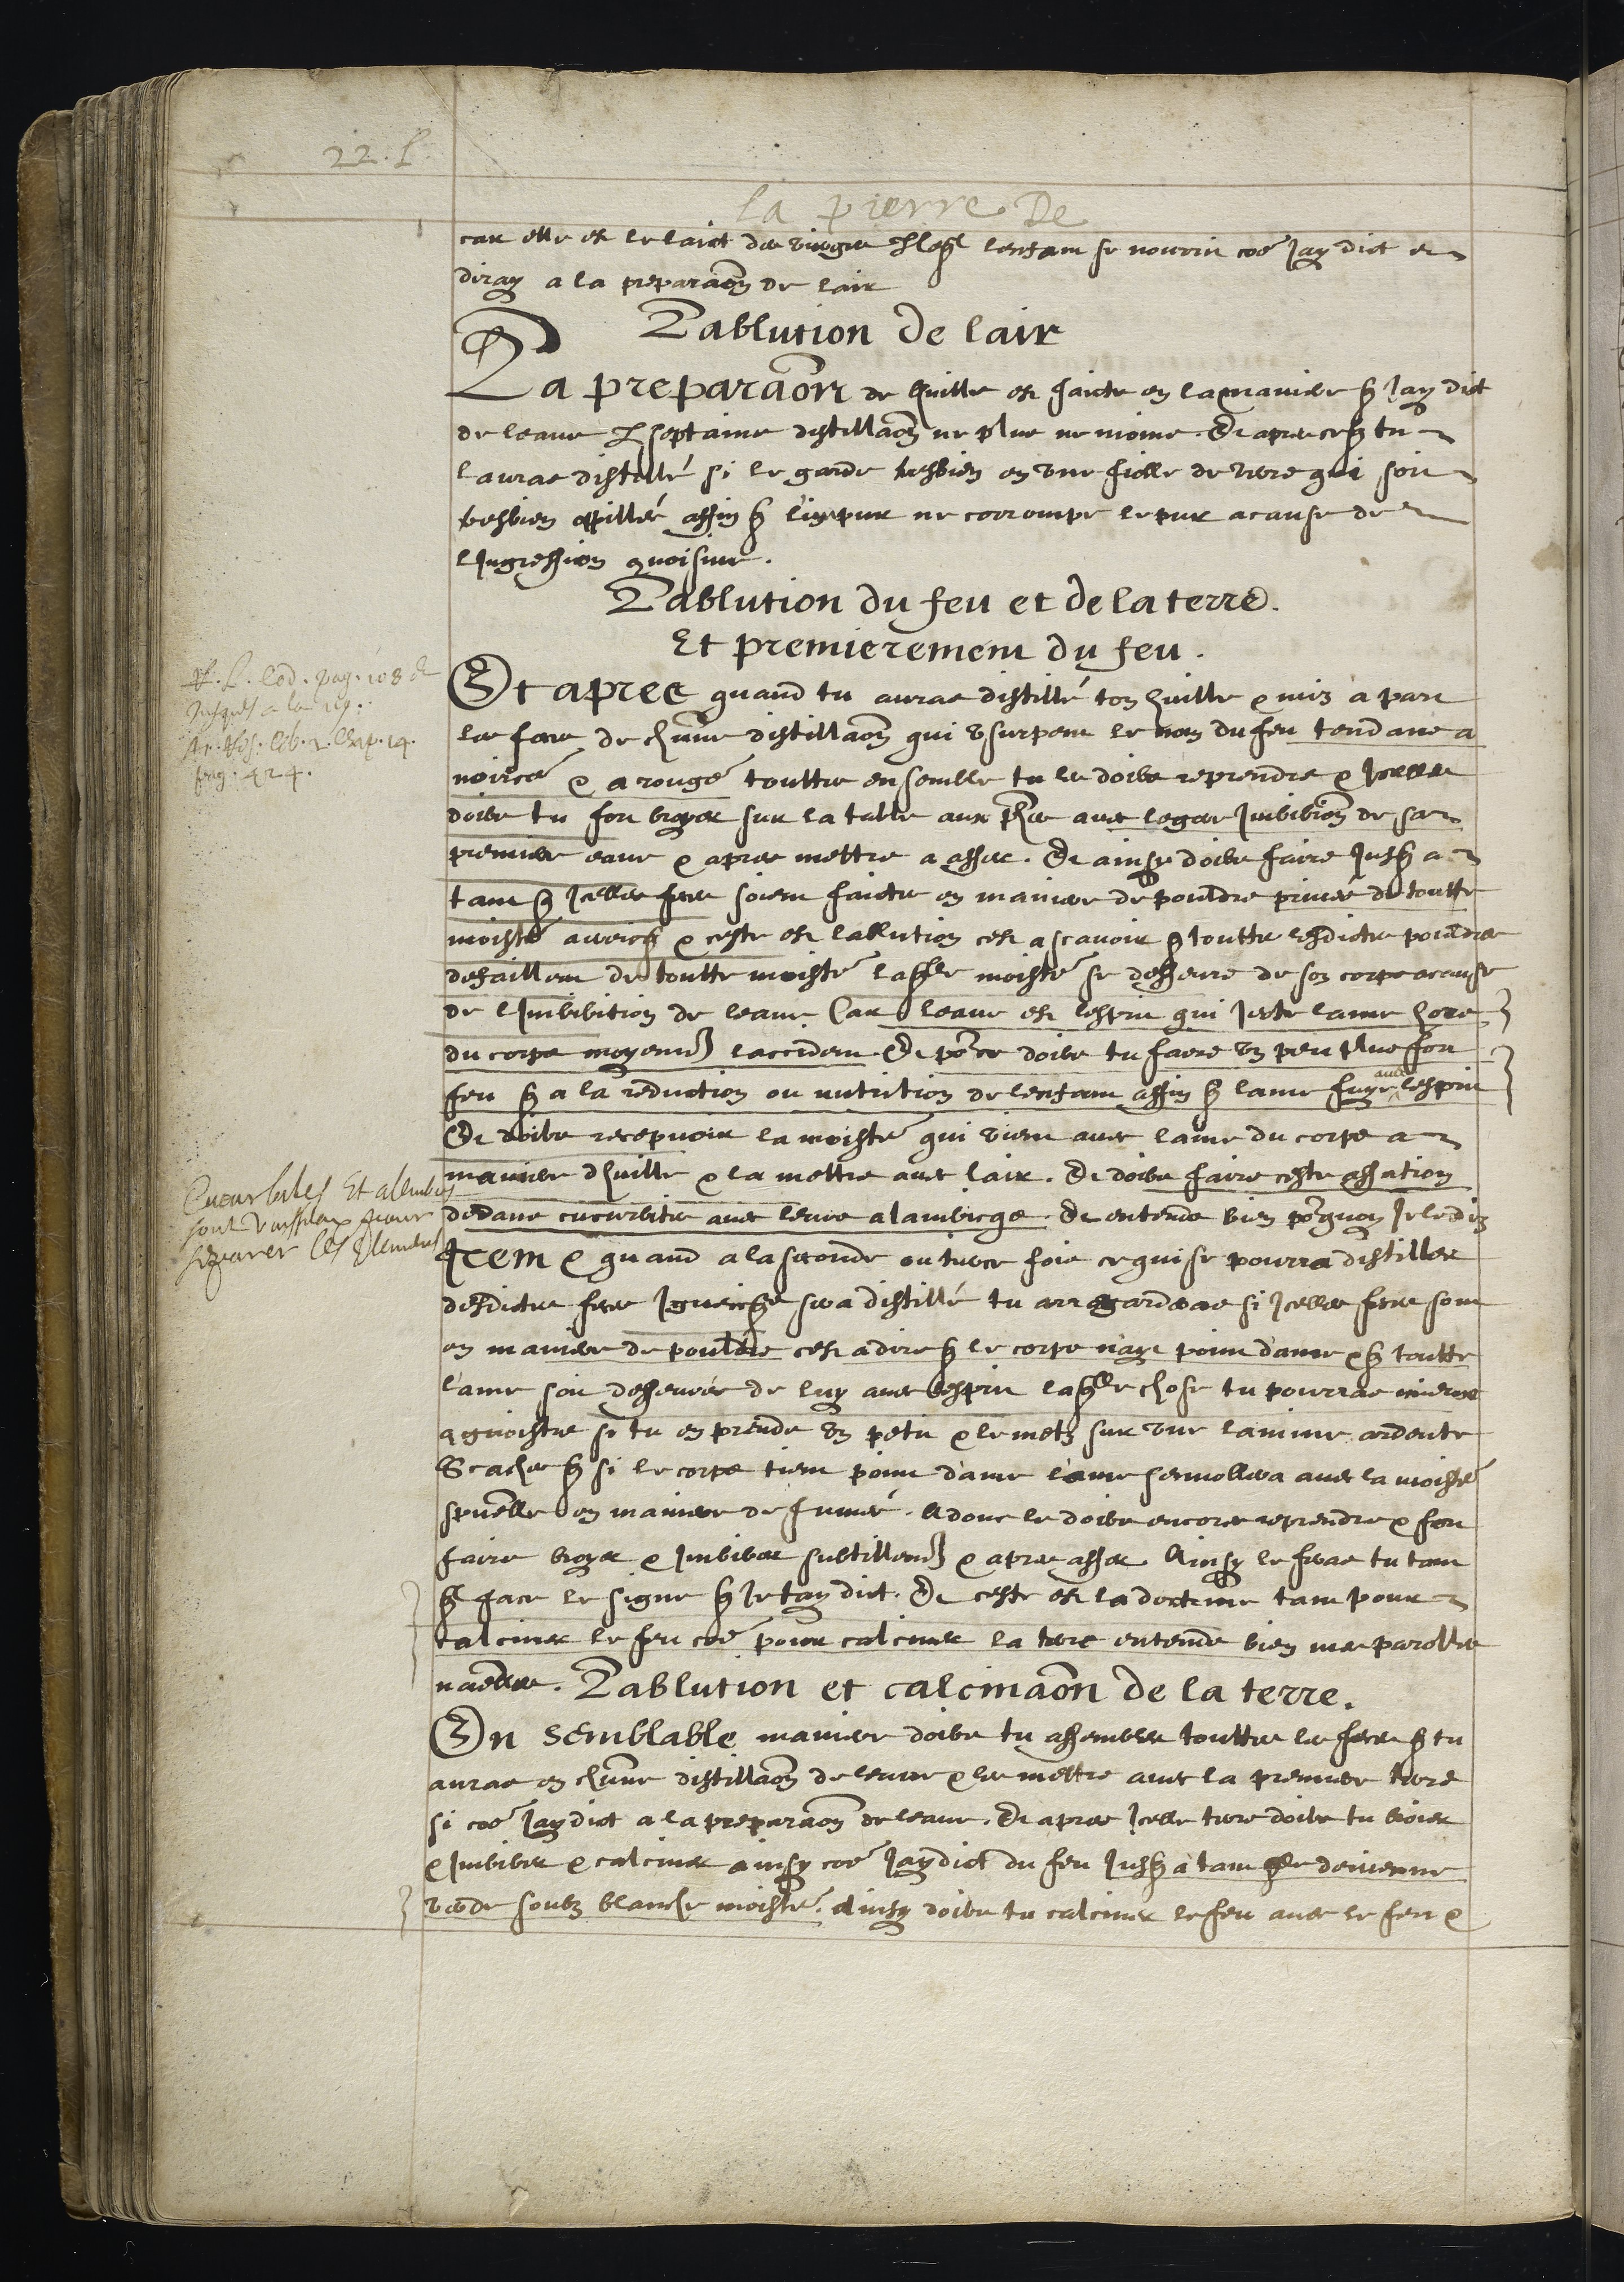 22. f.
la pierre De
car elle est le laict de vierge duql lenfant se nourrit coe Jay dict et
diray a la preparaon de lair
Lablution de lair
La preparaon de huille est faicte en la maniere q Jay dict
de leaue p septaine distillaon ne plus ne moins. Et apres ce q tu
lauras distillé si le garde tresbien en une fiolle de verre qui soit
tresbien estillée affin q limpur ne corrompe le pur a cause de
lJngression
Lablution du feu et de la terre.
Et premierement du feu.
Et apres quand tu auras distillé ton huille & mis a part
les feces de chune distillaon qui usurpent le nom du feu tendans a
noirce & a rouge touttes ensemble tu les doibs reprendre & Jcelles
doibs tu fort broyer sur la table aux phes avec leger Jmbibion de sa
premiere eaue & apres mettre a asser. Et ainsy doibs faire Jusq a
tant q Jcelles feces soient faictes en maniere de pouldre privée de toutte
moisté & ceste est lablution cest a scavoir q touttes lesdictes pouldres
defaillent de toutte moisté laqlle moisté se desseure de son corps a cause
de lJmbibition de leaue Car leaue est lesprit qui Jecte lame hors
du corps moyennt laccident. Et pour ce doibs tu faire un peu plus fort
feu q a la reduction ou nutrition de lenfant affin q lame fuye avec lesprit
Et doibs recepvoir la moisté qui vient avec lame du corps a
maniere dhuille & la mettre avec lair. Et doibs faire ceste assation
dedans cucurbites avec leurs alambicqs. Et entends bien pourquoy Je le dis
Jtem & quand a la seconde ou tierce fois ce qui se pourra distiller
desdictes feces sera distillé tu arregarderas si Jcelles feces sont
en maniere de pouldre cest a dire q le corps naye point dame & q toutte
lame soit desseurée de luy avec lesprit laqlle chose tu pourras mieux
cgnoistre si tu en prends un petit & le mets sur une lamine ardente
Scaches q si le corps tient point dame lame senvollera avec la moisté
spuelle en maniere de fumée. Adonc le doibs encores reprendre & fort
faire broyer & Jmbiber subtillemt & apres asser. Ainsy le feras tu tant
q face le signe q Je tay dict. Et ceste est la doctrine tant pour
calciner le feu coe pour calciner la terre entends bien mes parolles
Lablution et calcinaon de la terre.
En semblable maniere doibs tu assembler touttes les feces q tu
auras en chune distillaon de leaue & les mettre avec la premiere terre
si coe Jay dict a la preparaon de leaue. Et apres Jcelle terre doibs tu broier
& Jmbiber & calciner ainsy coe Jay dict du feu Jusq a tant qlle devienne
verde soubz blanche moisté. Ainsy doibs tu calciner le feu avec le feu &
pag. 108
Jusques a la
lib. 2. Chap. 14.
pag. 424.
Cucurbites Et alembics
sont vaisseaux pour
separer les Elements